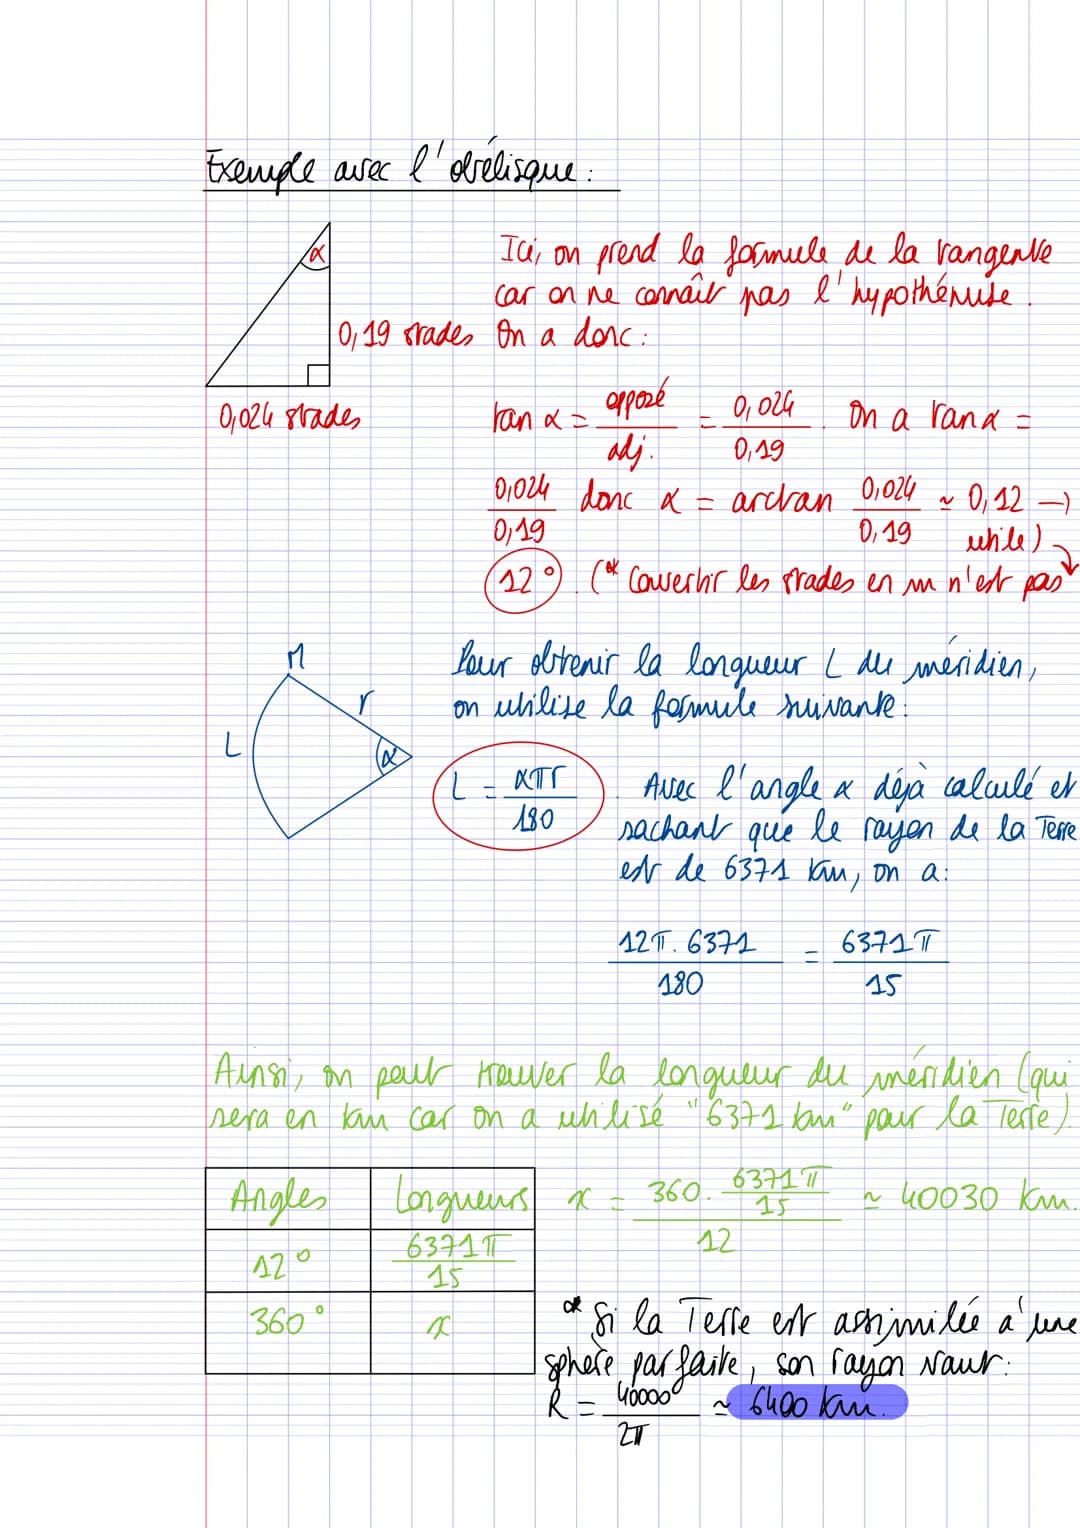 Exemple avec l'obélisque :
α
0,19 stades
0,024 stades
Ici, on prend la formule de la tangente
car on ne connaît pas l'hypothénuse.
On a donc :
tan α = opposé / adj. = 0,024 / 0,19 . On a tan α =
0,024 / 0,19 donc α = arctan 0,024 / 0,19 ≈ 0,12 →
utile)
12°. (* Convertir les stades en m n'est pas
M
r
L
α
Pour obtenir la longueur L du méridien,
on utilise la formule suivante :
L = απr / 180 . Avec l'angle α déjà calculé et
sachant que le rayon de la Terre
est de 6371 km, on a :
12π . 6371 / 180 = 6371π / 15
Ainsi, on peut trouver la longueur du méridien (qui
sera en km car on a utilisé "6371 km" pour la Terre).
Angles Longueurs
12° 6371π / 15
360° x
x = 360 . 6371π / 15 / 12 ≈ 40030 km.
* Si la Terre est assimilée à une
sphère parfaite, son rayon vaut :
R = 40000 / 2π ≈ 6400 km.